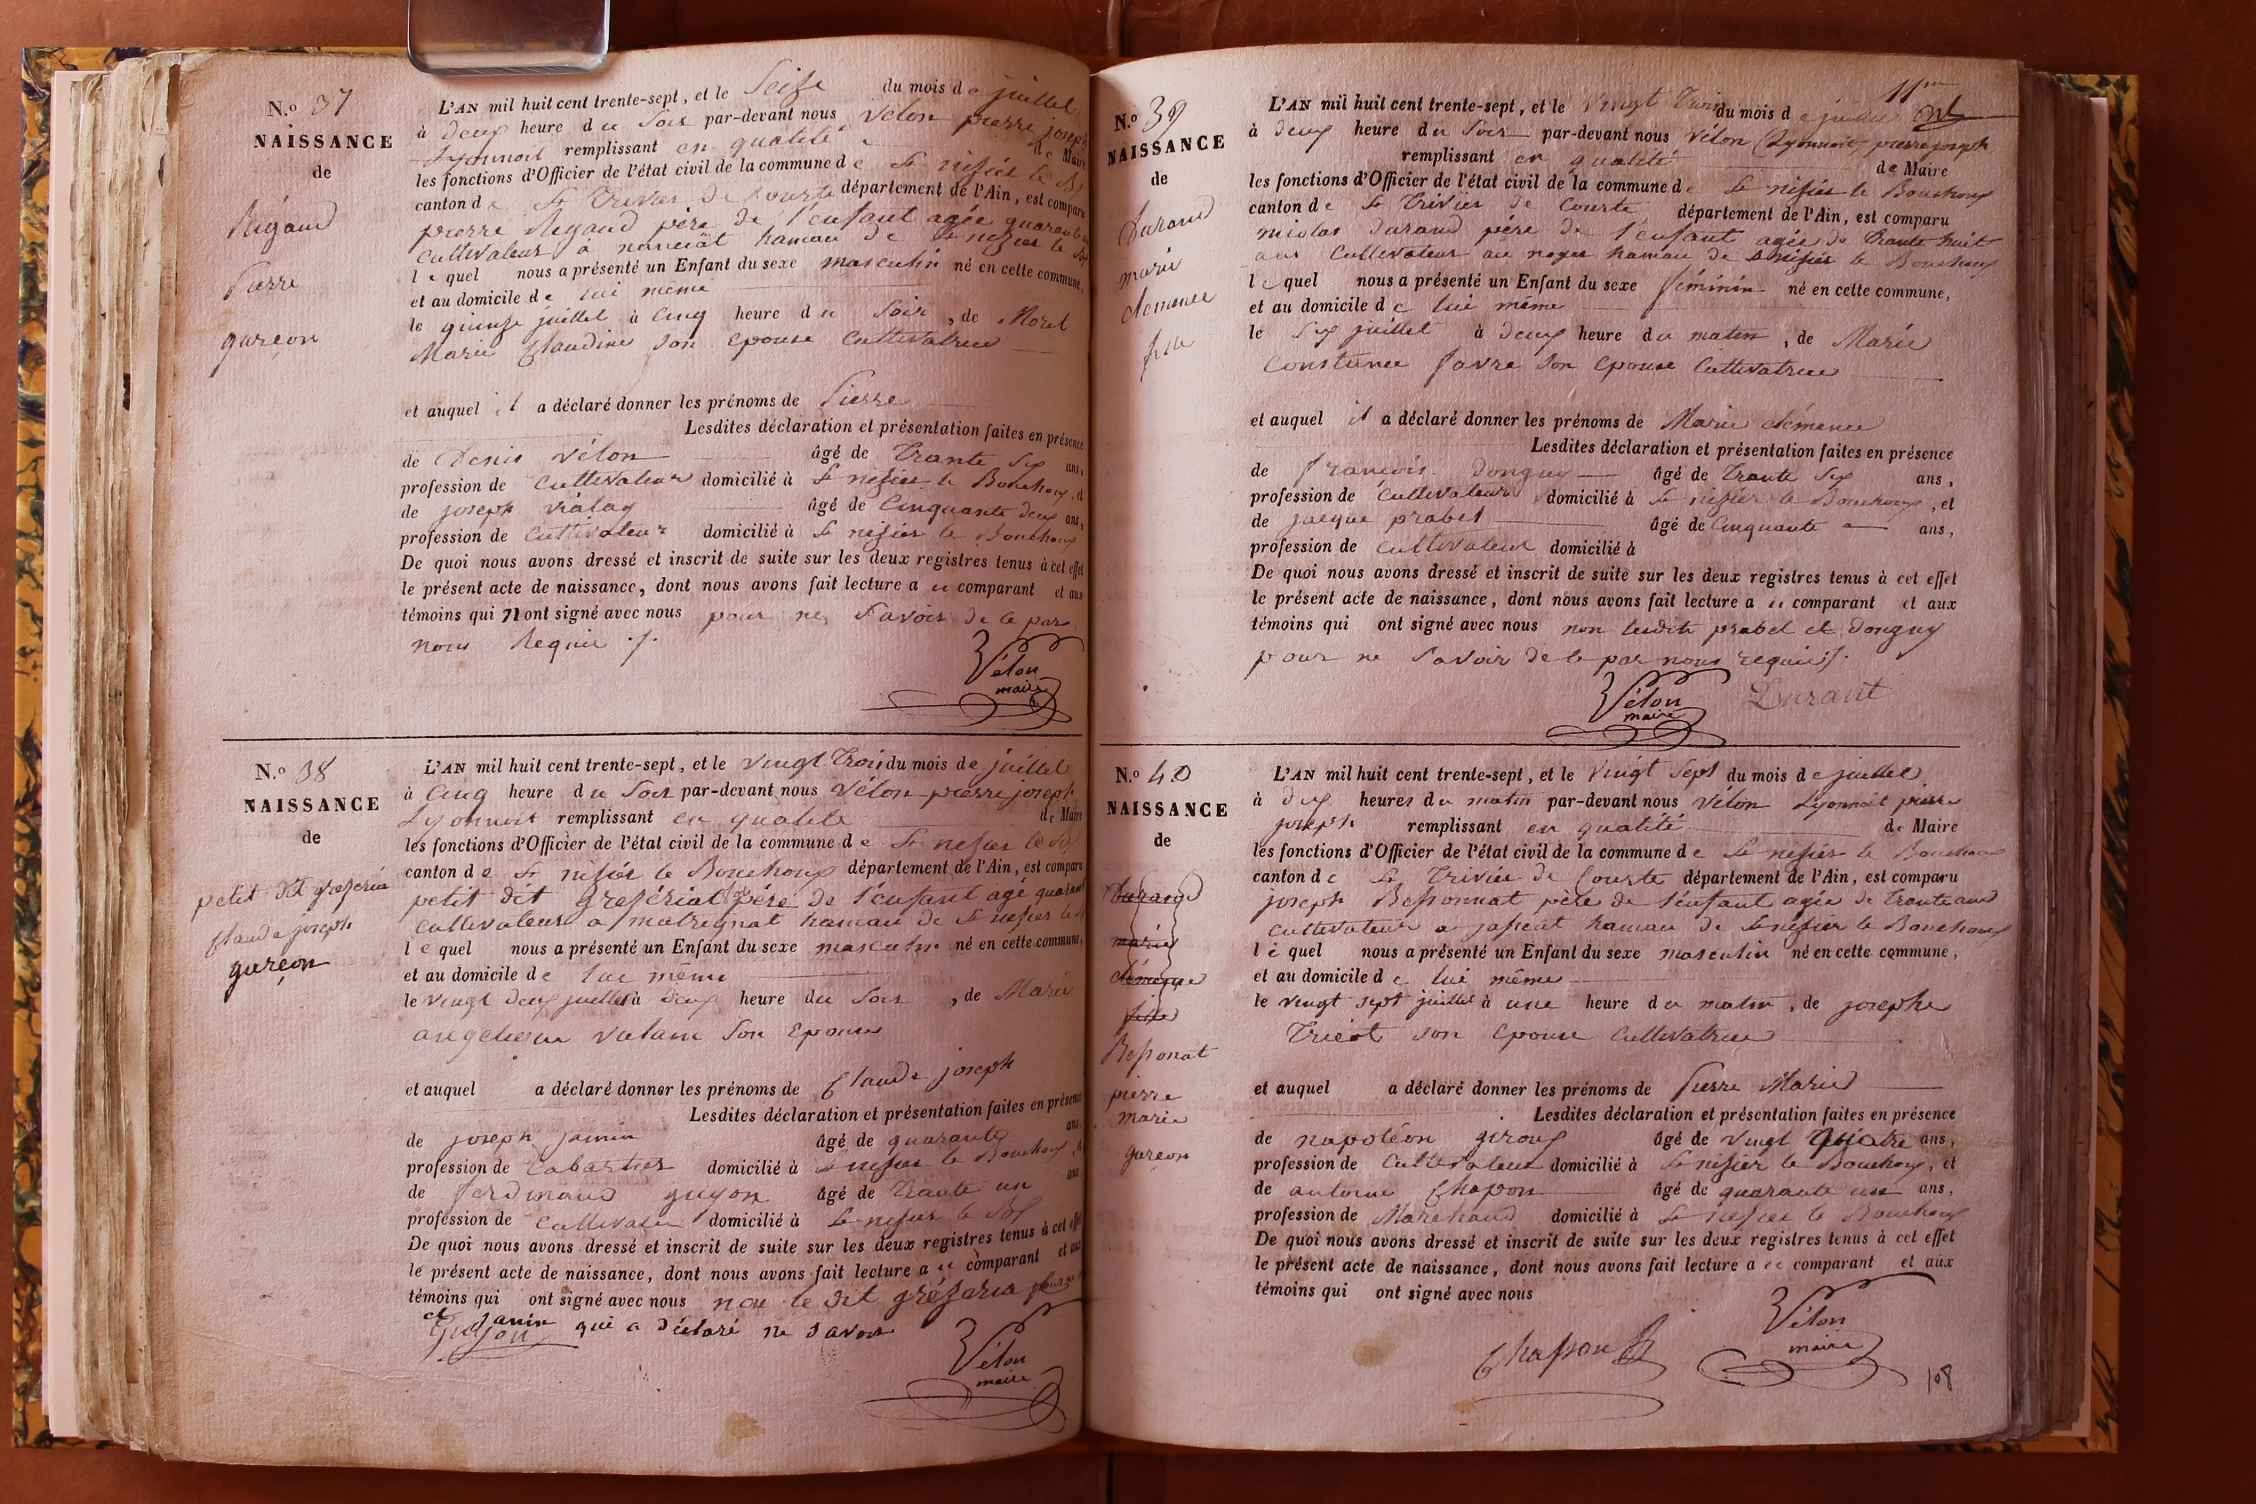 N.o 37
NAISSANCE
de
Rigaud
Pierre
garçon
L'AN mil huit cent trente-sept, et le Seize du mois de juillet
à deux heure du Soir par-devant nous Vélon pierre joseph
Lyonnoit remplissant en qualité de Maire
les fonctions d'Officier de l'état civil de la commune de St nisier le B
canton de St Trivier de Courte département de l'Ain, est comparu
pierre Rigaud père de l'enfant agée quarante
cultivateur à hamau de St nizier le
lequel nous a présenté un Enfant du sexe masculin né en cette commune,
et au domicile de lui même
le quinze juillet à Cinq heure du Soir, de Morel
Marie Claudine son epouse Cultivatrice
et auquel il a déclaré donner les prénoms de Pierre
Lesdites déclaration et présentation faites en présence
de Denis Vélon âgé de Trante Six ans,
profession de Cultivateur domicilié à St nisier le Bouchoux, et
de joseph Vialay âgé de Cinquante deux ans,
profession de Cultivateur domicilié à St nisier le Bouchoux
De quoi nous avons dressé et inscrit de suite sur les deux registres tenus à cet effet
le présent acte de naissance, dont nous avons fait lecture au comparant et aux
témoins qui n'ont signé avec nous pour ne Savoir de ce par
nous Requis ./.
Vélon
maire
N.o 38
NAISSANCE
de
petit dit greferia
Claude joseph
garçon
L'AN mil huit cent trente-sept, et le vingt Trois du mois de juillet
à Cinq heure du Soir par-devant nous Vélon pierre joseph
Lyonnoit remplissant en qualité de Maire
les fonctions d'Officier de l'état civil de la commune de St nesier le
canton de St nisier le Bouchoux département de l'Ain, est comparu
petit dit père de l'enfant agé quarant
Cultivateur a matregnat hamau de St nesier le
lequel nous a présenté un Enfant du sexe masculin né en cette commune,
et au domicile de lui même
le vingt deux juillet à deux heure du Soir, de Marie
son Epouse
et auquel a déclaré donner les prénoms de Claude joseph
Lesdites déclaration et présentation faites en présence
de joseph janin âgé de quarante ans
profession de Cabartier domicilié à St nesier le Bouchoux, et
de ferdinand guyon âgé de Trante un ans
profession de Cultivateur domicilié à St nesier le
De quoi nous avons dressé et inscrit de suite sur les deux registres tenus à cet effet
le présent acte de naissance, dont nous avons fait lecture au comparant et aux
témoins qui ont signé avec nous non le dit
et janin qui a déclaré ne savoir
Guyon
Vélon
maire
N.o 39
NAISSANCE
de
Durand
marie
clemence
fille
L'AN mil huit cent trente-sept, et le Vingt Trois du mois de juillet
à deux heure du Soir par-devant nous Vélon Lyonnoit, pierre joseph
remplissant en qualité de Maire
les fonctions d'Officier de l'état civil de la commune de St nisier le Bouchoux
canton de St Trivier de Courte département de l'Ain, est comparu
nicolas Durand père de l'enfant agée de Trante huit
ans Cultivateur au noyer hamau de St nisier le Bouchoux
lequel nous a présenté un Enfant du sexe féminin né en cette commune,
et au domicile de lui même
le Six juillet à deux heure du matin, de Marie
Constance favre son epouse Cultivatrice
et auquel il a déclaré donner les prénoms de Marie clémence
Lesdites déclaration et présentation faites en présence
de françois Donguy âgé de Trante Six ans,
profession de Cultivateur domicilié à St nisier le Bouchoux, et
de jacque prabel âgé de Cinquante ans,
profession de Cultivateur domicilié à
De quoi nous avons dressé et inscrit de suite sur les deux registres tenus à cet effet
le présent acte de naissance, dont nous avons fait lecture au comparant et aux
témoins qui ont signé avec nous non lesdits prabel et donguy
pour ne Savoir de ce par nous requis ./.
Vélon
maire
Durant
N.o 40
NAISSANCE
de
Durand
marie
clémence
fille
Bessonat
pierre
marie
garçon
L'AN mil huit cent trente-sept, et le Vingt Sept du mois de juillet
à dix heures du matin par-devant nous Vélon Lyonnoit pierre
joseph remplissant en qualité de Maire
les fonctions d'Officier de l'état civil de la commune de St nesier le Bouchoux
canton de St Trivier de Courte département de l'Ain, est comparu
joseph Bessonnat père de l'enfant agée de Trante ans
cultivateur a hamau de St nisier le Bouchoux
lequel nous a présenté un Enfant du sexe masculin né en cette commune,
et au domicile de lui même
le vingt sept juillet à une heure du matin, de josephe
Tricot son epouse Cultivatrice
et auquel a déclaré donner les prénoms de Pierre Marie
Lesdites déclaration et présentation faites en présence
de napoléon giroux âgé de vingt quatre ans,
profession de Cultivateur domicilié à St nisier le Bouchoux, et
de antoine Chapon âgé de quarante un ans,
profession de Marchand domicilié à St nesier le Bouchoux
De quoi nous avons dressé et inscrit de suite sur les deux registres tenus à cet effet
le présent acte de naissance, dont nous avons fait lecture au comparant et aux
témoins qui ont signé avec nous
Chapon
Vélon
maire
108